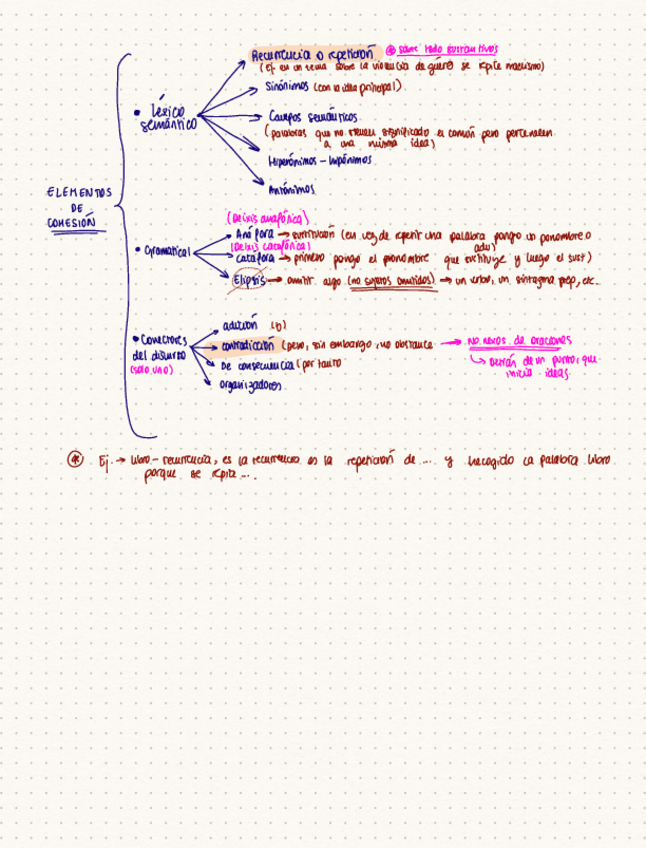 ELEMENTOS
DE
COHESIÓN
• Léxico
semántico
Recurrencia o repetición ⊛ sobre todo sustantivos
(Ej. en un tema sobre la violencia de género se repite machismo)
Sinónimos (con la idea principal)
Campos semánticos
(palabras que no tienen significado en común pero pertenecen
a una misma idea)
Hiperónimos - hipónimos
Antónimos
• Gramatical
(Deixis anafórica)
Anáfora → sustitución (en vez de repetir una palabra pongo un pronombre o
adv)
(Deixis catafórica)
catáfora → primero pongo el pronombre que sustituye y luego el sust)
Elipsis → omitir algo (no sujetos omitidos) → un verbo, un sintagma prep, etc...
• Conectores
del discurso
(solo uno)
adición (y)
contradicción (pero, sin embargo, no obstante → no nexos de oraciones
↳ detrás de un punto, que
inicia ideas
De consecuencia (por tanto
organizadores
⊛ Ej. → libro - recurrencia, es la recurrencia es la repetición de .... y he cogido la palabra libro
porque se repite ....